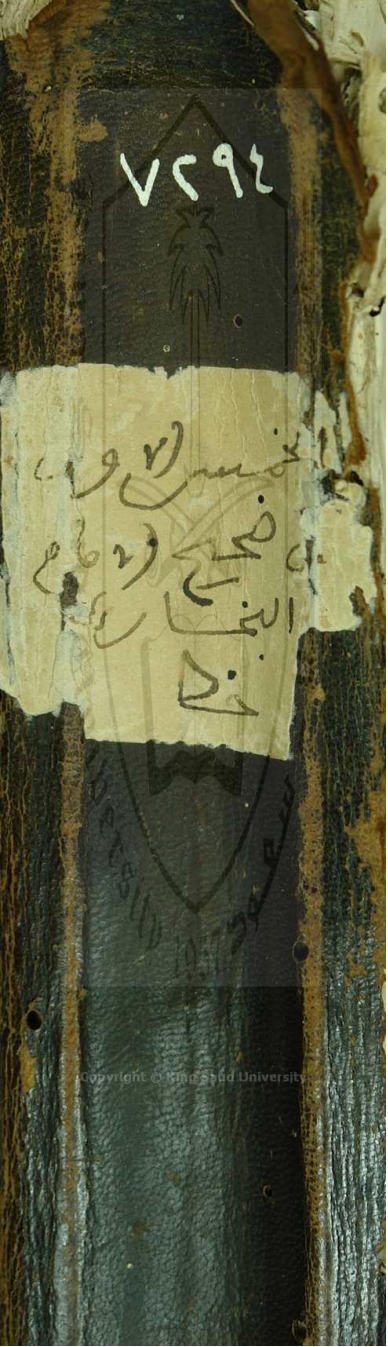 ٧٢٩٤
الخمس الاول
من صحيح الامام
البخاري
خط
Copyright © King Saud University